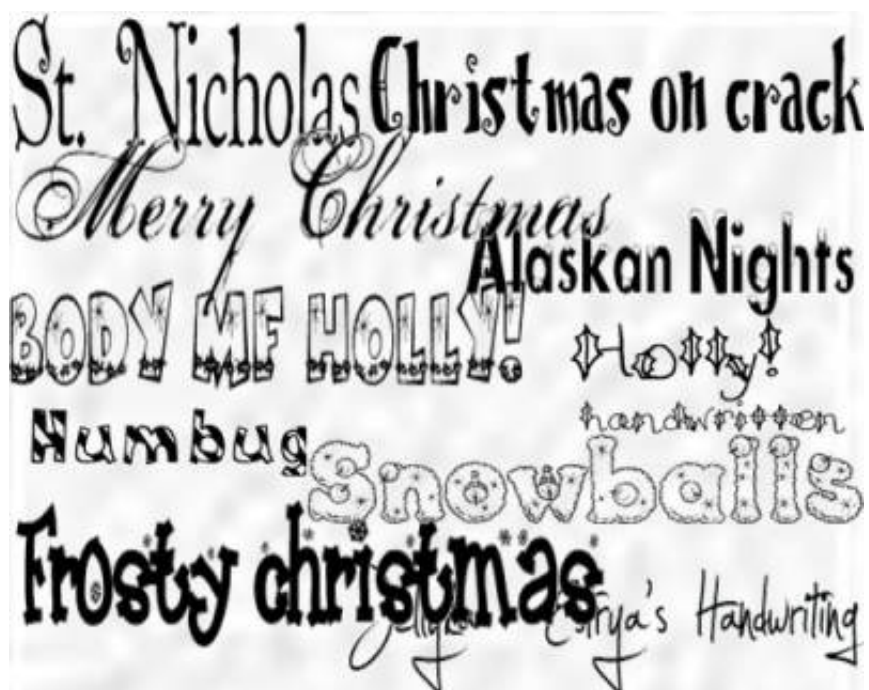 St. Nicholas Christmas on crack
Merry Christmas
Alaskan Nights
BODY MF HOLLY!
Holly!
Humbug
handwritten
Snowballs
Frosty christmas
Handwriting